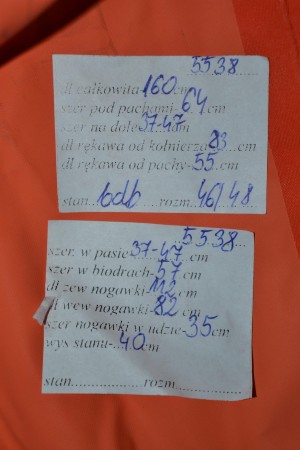 5538
dł całkowita 160 cm
szer pod pachami- 64 cm
szer na dole 37-47 cm
dł rękawa od kołnierza 83 cm
dł rękawa od pachy- 55 cm
stan bdb rozm. 46/48
5538
szer. w pasie 37-47 cm
szer w biodrach- 57 cm
dł zew nogawki 112 cm
dł wew nogawki- 82 cm
szer nogawki w udzie- 35 cm
wys stanu- 40 cm
stan rozm